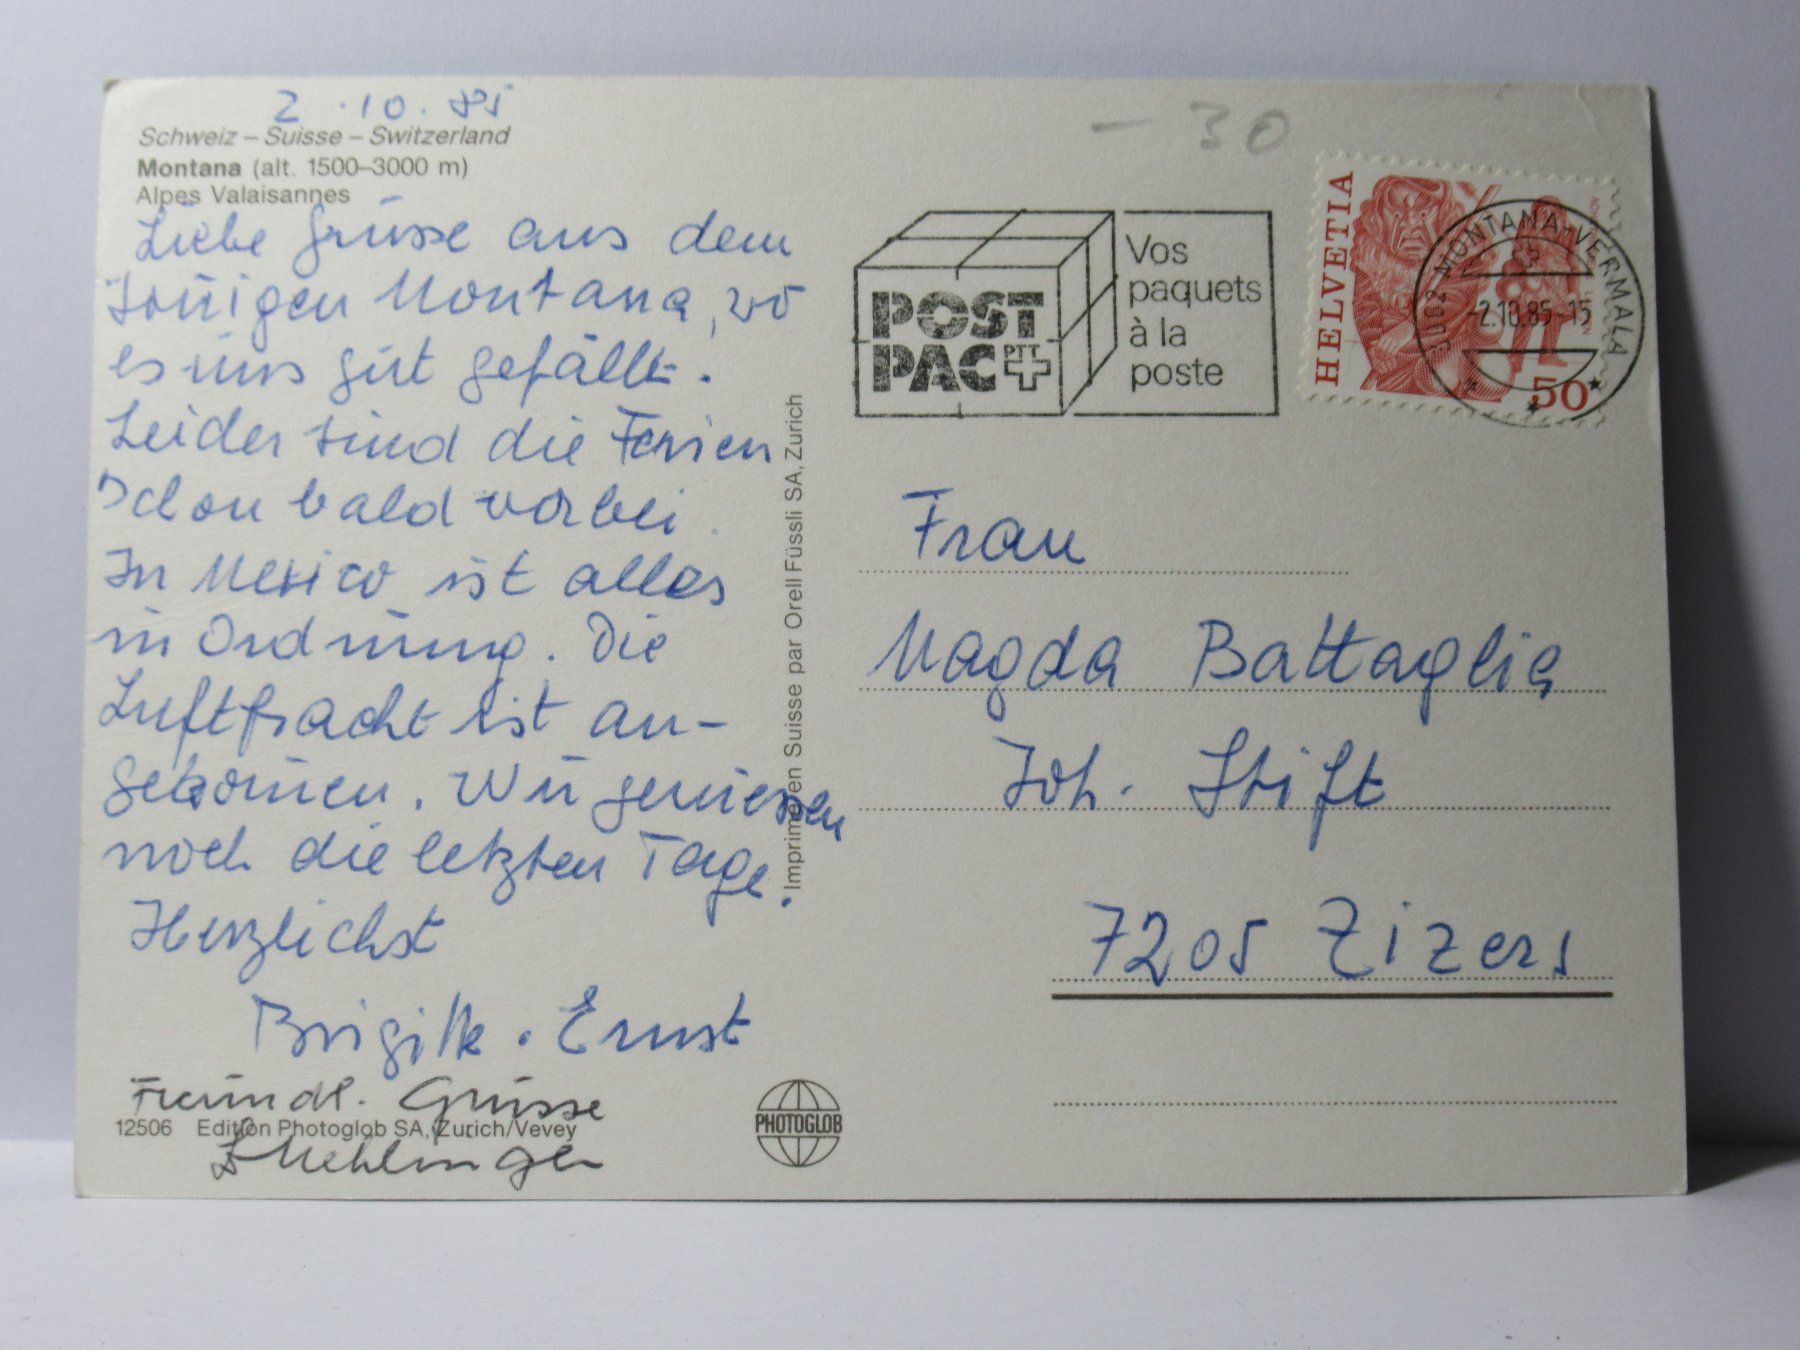 2.10.85
Schweiz – Suisse – Switzerland
Montana (alt. 1500–3000 m)
Alpes Valaisannes
Liebe Grüsse aus dem
sonnigen Montana, wo
es uns gut gefällt.
Leider sind die Ferien
schon bald vorbei.
In Mexico ist alles
in Ordnung. Die
Luftfracht ist an-
gekommen. Wir geniessen
noch die letzten Tage.
Herzlichst
Brigitte. Ernst
Freundl. Grüsse
12506 Edition Photoglob SA, Zurich/Vevey
Imprimé en Suisse par Orell Füssli SA, Zurich
PHOTOGLOB
– 30
POST
PAC PTT
Vos
paquets
à la
poste
HELVETIA
50
3962 MONTANA-VERMALA
-2.10.85-15
Frau
Magda Battaglia
Joh. Stift
7205 Zizers